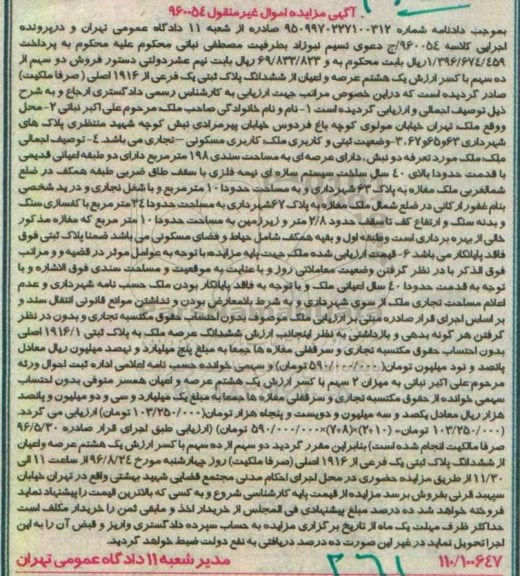 آگهی مزایده اموال غیرمنقول ۹۶۰۰۵۴
بموجب دادنامه شماره ۹۵۰۹۹۷۰۲۲۷۱۰۰۳۱۲ صادره از شعبه ۱۱ دادگاه عمومی تهران و درپرونده
اجرایی کلاسه ۹۶۰۰۵۴/ج دعوی نسیم نبوزاد بطرفیت مصطفی نباتی محکوم علیه محکوم به پرداخت
۱/۳۹۶/۶۷۴/۴۵۹ریال بابت محکوم به و ۶۹/۸۳۳/۸۲۳ ریال بابت نیم عشردولتی دستور فروش دو سهم از
ده سهم با کسر ارزش یک هشتم عرصه و اعیان از ششدانگ پلاک ثبتی یک فرعی از ۱۹۱۶ اصلی (صرفا ملکیت)
صادر گردیده است که دراین خصوص مراتب جهت ارزیابی به کارشناس رسمی دادگستری ارجاع و به شرح
ذیل توصیف اجمالی و ارزیابی گردیده است ۱- نام و نام خانوادگی صاحب ملک: مرحوم علی اکبر نباتی ۲- محل
ووقع ملک: تهران خیابان مولوی کوچه باغ فردوس خیابان پیرمرادی نبش کوچه شهید منتظری پلاک های
شهرداری ۶۳و۶۵و۶۷ ۳-وضعیت ثبتی و کاربری ملک: کاربری مسکونی –تجاری می باشد. ۴- توصیف اجمالی
ملک: ملک مورد تعرفه دو نبش، دارای عرصه ای به مساحت سندی ۱۹۸ مترمربع دارای دو طبقه اعیانی قدیمی
با قدمت حدودا بالای ۴۰ سال ساخت سیستم سازه ای نیمه فلزی با سقف طاق ضربی طبقه همکف در ضلع
شمالغربی ملک مغازه به پلاک ۶۳ شهرداری و به مساحت حدودا ۱۰ مترمربع و با شغل نجاری و در ید شخصی
بنام غفور ارکانی در ضلع شمال ملک مغازه به پلاک ۶۷شهرداری به مساحت حدودا ۲۴ مترمربع با کفسازی سنگ
و بدنه سنگ و ارتفاع کف تا سقف حدود ۲/۸ متر و زیرزمین به مساحت حدودا ۱۰ متر مربع که مغازه مذکور
خالی از بهره برداری است وطبقه اول و بقیه همکف شامل حیاط و فضای مسکونی می باشد ضمنا پلاک ثبتی فوق
فاقد پایانکار می باشد ۶- قیمت ارزیابی شده ملک جهت پایه مزایده: با توجه به عوامل موثر در قضیه و و مراتب
فوق الذکر با در نظر گرفتن وضعیت معاملاتی روز و با عنایت به موقعیت و مساحت سندی فوق الاشاره و با
توجه به قدمت حدودا ۴۰ سال اعیانی ملک و با توجه به فاقد پایانکار بودن ملک حسب نامه شهرداری و عدم
اعلام مساحت تجاری ملک از سوی شهرداری و به شرط بلامعارض بودن و نداشتن موانع قانونی انتقال سند و
بر اساس اجرای قرار صادره مبنی بر ارزیابی ملک موصوف بدون احتساب حقوق مکتسبه تجاری و بدون در نظر
گرفتن هر گونه بدهی و بازداشتی به نظر اینجانب ارزش ششدانگ عرصه ملک به پلاک ثبتی ۱۹۱۶/۱ اصلی
بدون احتساب حقوق مکتسبه تجاری و سرقفلی مغازه ها جمعا به مبلغ پنج میلیارد و نهصد میلیون ریال معادل
پانصد و نود میلیون تومان(۵۹۰/۰۰۰/۰۰۰ تومان) و سهمی خوانده حسب نامه اعلامی اداره ثبت احوال ورثه
مرحوم علی اکبر نباتی به میزان ۲ سهم با کسر ارزش یک هشتم عرصه و اعیان همسر متوفی بدون احتساب
سهمی خوانده از حقوق مکتسبه تجاری و سرقفلی مغازه ها جمعا به مبلغ یک میلیارد و سی و دو میلیون و پانصد
هزار ریال معادل یکصد و سه میلیون و دویست و پنجاه هزار تومان(۱۰۳/۲۵۰/۰۰۰ تومان) ارزیابی می گردد.
(۱۰۳/۲۵۰/۰۰۰ تومان= (۲÷۱۰)×(۷÷۸)×۵۹۰/۰۰۰/۰۰۰ تومان) (ارزیابی طبق اجرای قرار صادره ۹۶/۵/۳۰
صرفا مالکیت انجام شده است) بنابراین مقرر گردید دو سهم از ده سهم با کسر ارزش یک هشتم عرصه واعیان
از ششدانگ پلاک ثبتی یک فرعی از ۱۹۱۶ اصلی (صرفا ملکیت) روز چهارشنبه مورخ ۹۶/۸/۲۴ از ساعت ۱۱ الی
۱۱/۳۰ از طریق مزایده حضوری در محل اجرای احکام مدنی مجتمع قضایی شهید بهشتی واقع در تهران خیابان
سپهبد قرنی بفروش برسد مزایده از قیمت پایه کارشناسی شروع و به کسی که بالاترین قیمت را پیشنهاد نماید
فروخته خواهد شد ده درصد مبلغ پیشنهادی فی المجلس از خریدار اخذ و مابقی ثمن را خریدار مکلف است
حداکثر ظرف مهلت یک ماه از تاریخ برگزاری مزایده به حساب سپرده دادگستری واریز و قبض آن را به این
اجرا تحویل نماید در غیر این صورت ده درصد دریافتی به نفع دولت ضبط خواهد گردید.
۱۱۰/۱۰۰۶۴۷ مدیر شعبه ۱۱ دادگاه عمومی تهران
۲۶۱